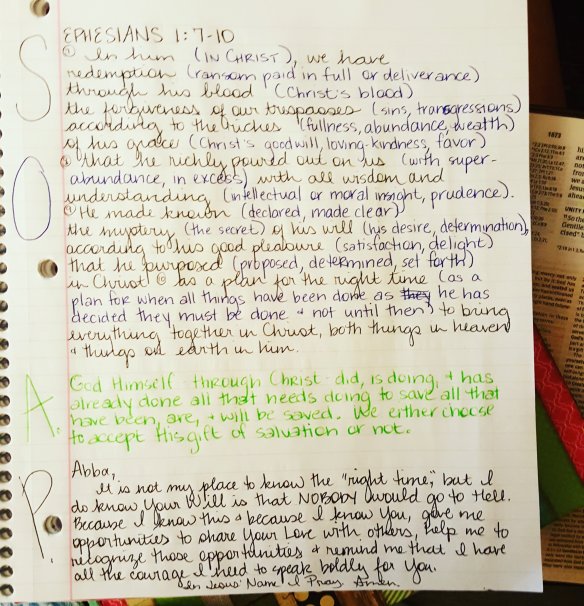 S
O
A.
P.
EPHESIANS 1:7-10
⑦ In him (IN CHRIST), we have
redemption (ransom paid in full or deliverance)
through his blood (Christ's blood)
the forgiveness of our trespasses (sins, transgressions)
according to the riches (fullness, abundance, wealth)
of his grace (Christ's goodwill, loving-kindness, favor)
⑧ that he richly poured out on us (with super-
abundance, in excess) with all wisdom and
understanding (intellectual or moral insight, prudence).
⑨ He made known (declared, made clear)
the mystery (the secret) of his will (his desire, determination),
according to his good pleasure (satisfaction, delight)
that he purposed (proposed, determined, set forth)
in Christ ⑩ as a plan for the right time (as a
plan for when all things have been done as they he has
decided they must be done + not until then) to bring
everything together in Christ, both things in heaven
+ things on earth in him.
God Himself - through Christ - did, is doing, + has
already done all that needs doing to save all that
have been, are, + will be saved. We either choose
to accept His gift of salvation or not.
Abba,
It is not my place to know the "right time," but I
do know Your Will is that NOBODY would go to Hell.
Because I know this + because I know You, give me
opportunities to share Your Love with others, help me to
recognize those opportunities + remind me that I have
all the courage I need to speak boldly for You.
In Jesus' Name I Pray. Amen.
1673